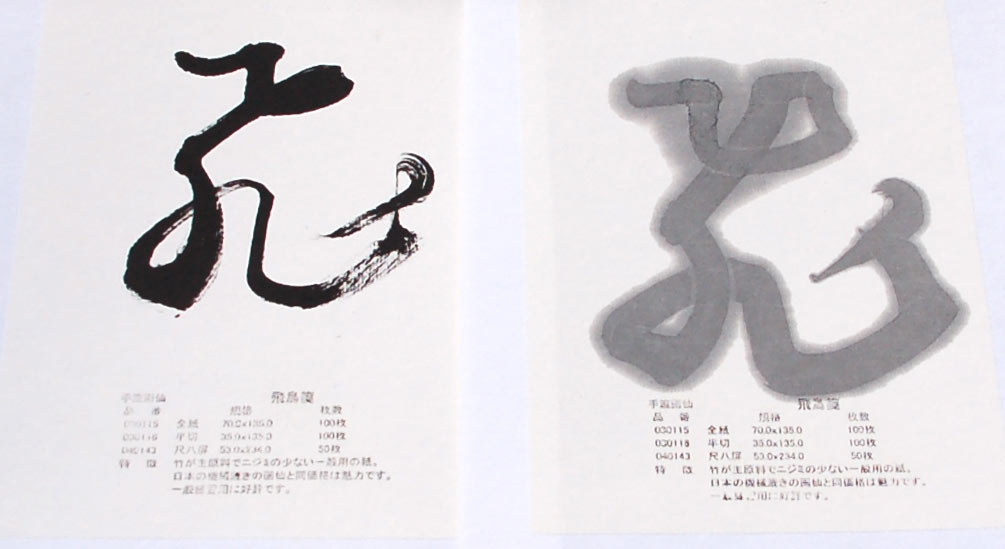 飛
手漉画仙 飛鳥箋
品 番 規格 枚数
030115 全紙 70.0x135.0 100枚
030116 半切 35.0x135.0 100枚
040143 尺八屏 53.0x234.0 50枚
特 徴 竹が主原料でニジミの少ない一般用の紙。
日本の機械漉きの画仙と同価格は魅力です。
一般練習用に好評です。
飛
手漉画仙 飛鳥箋
品 番 規格 枚数
030115 全紙 70.0x135.0 100枚
030116 半切 35.0x135.0 100枚
040143 尺八屏 53.0x234.0 50枚
特 徴 竹が主原料でニジミの少ない一般用の紙。
日本の機械漉きの画仙と同価格は魅力です。
用に好評です。